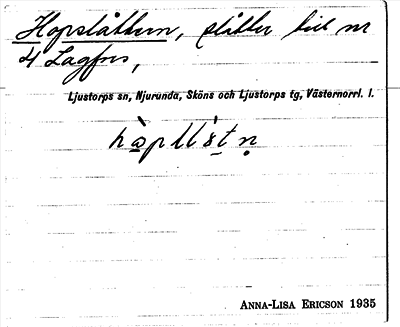 Hopslåttern, slåtter till nr
4 Lagfors,
Ljustorps sn, Njurunda, Sköns och Ljustorps tg, Västernorrl. l.
ANNA-LISA ERICSON 1935